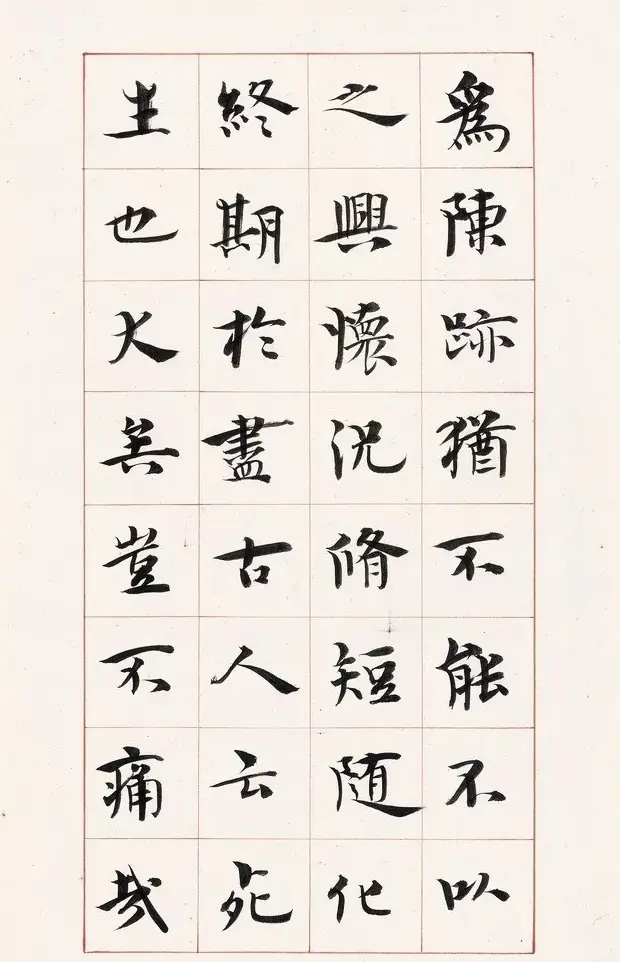 爲陳跡猶不能不以
之興懷況脩短随化
終期於盡古人云死
生也大矣豈不痛哉